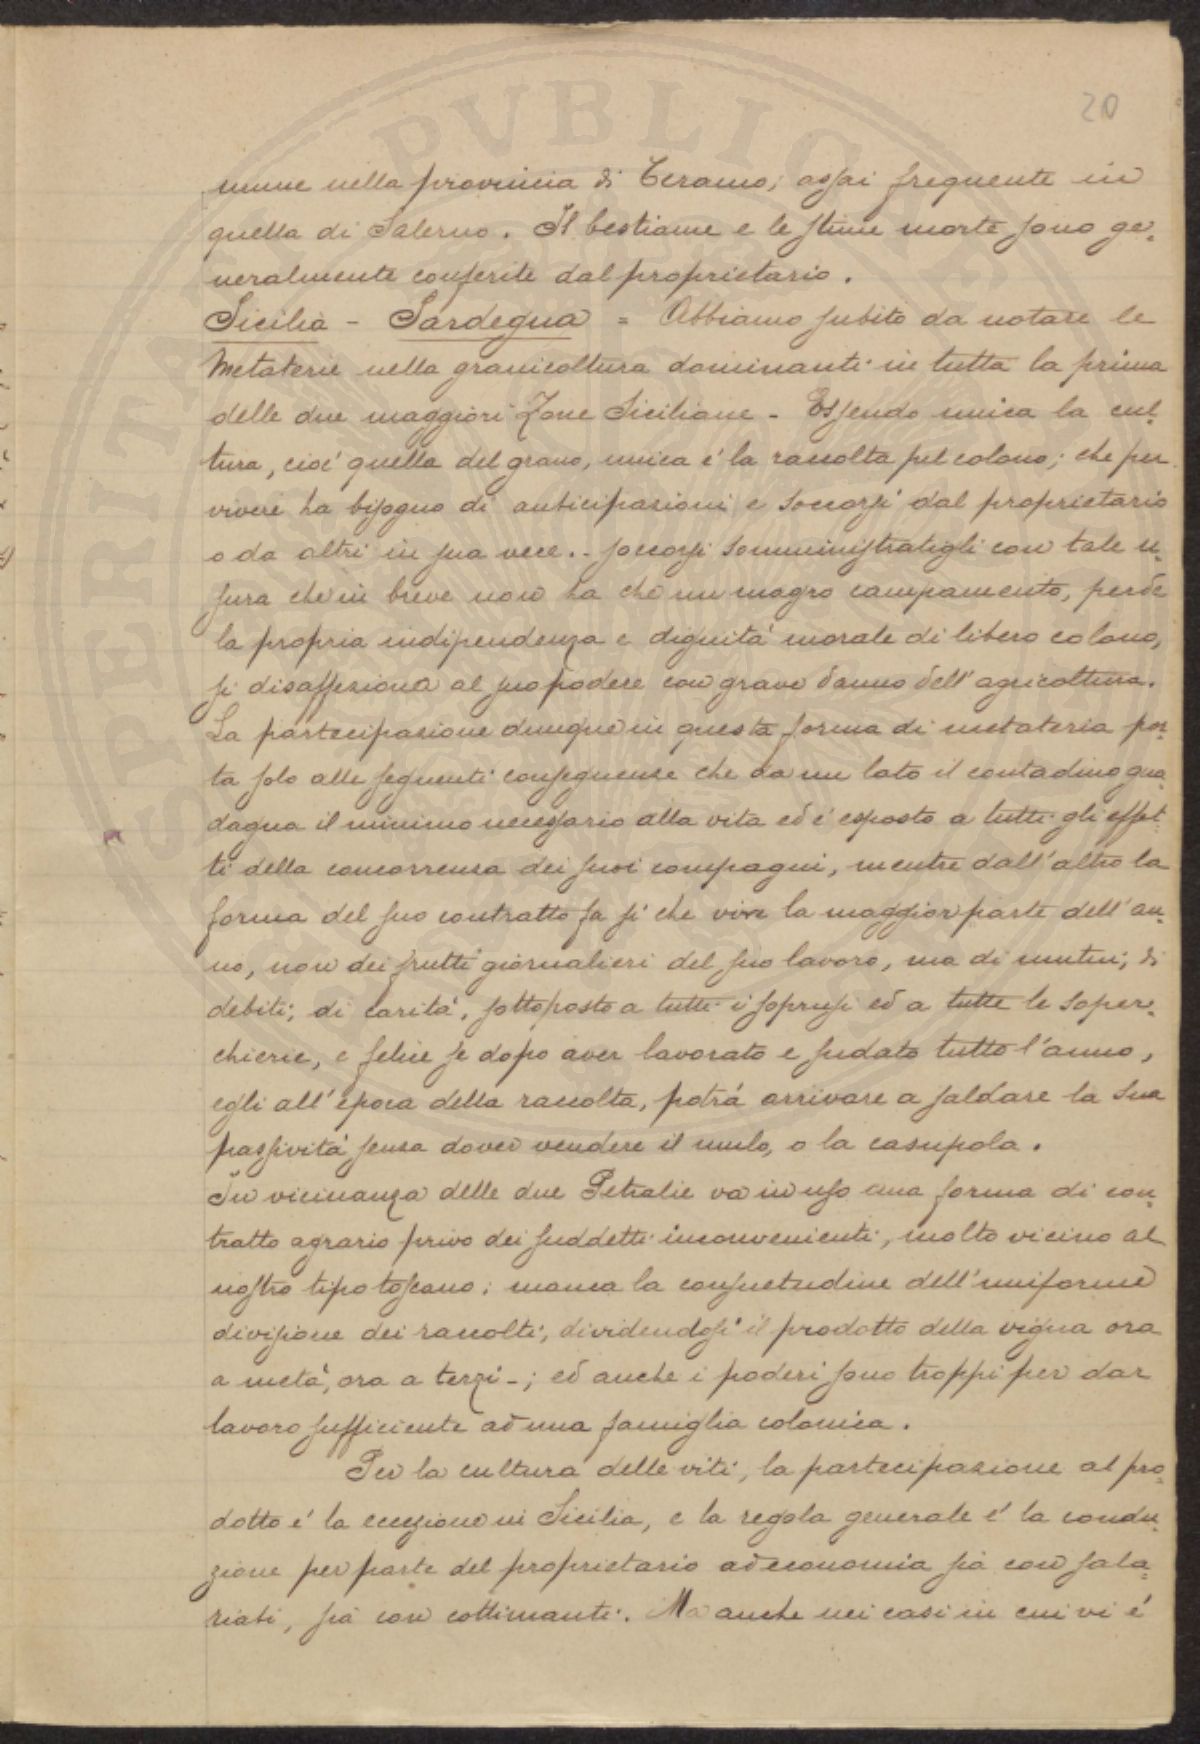 20
mune nella provincia di Teramo; assai frequente in
quella di Salerno. Il bestiame e le stime morte sono ge-
neralmente conferite dal proprietario.
Sicilia - Sardegna = Abbiamo subito da notare le
Metaterie nella granicoltura dominanti in tutta la prima
delle due maggiori Zone Siciliane - Essendo unica la cul-
tura, cioé quella del grano, unica é la raccolta pel colono; che per
vivere ha bisogno di anticipazioni e soccorsi dal proprietario
o da altri in sua vece.- soccorsi somministratigli con tale u-
sura che in breve non ha che un magro campamento, perde
la propria indipendenza e dignitá morale di libero colono,
si disaffeziona al suo podere con grave danno dell'agricoltura.
La partecipazione dunque in questa forma di metateria por-
ta solo alle seguenti conseguenze che da un lato il contadino gua-
dagna il minimo necessario alla vita ed é esposto a tutti gli effet-
ti della concorrenza dei suoi compagni, mentre dall'altro la
forma del suo contratto fa si che vive la maggior parte dell'an-
no, non dei frutti giornalieri del suo lavoro, ma di mutui; di
debiti; di caritá, sottoposto a tutti i soprusi ed a tutte le soper-
chierie, e felice se dopo aver lavorato e sudato tutto l'anno,
egli all'epoca della raccolta, potrá arrivare a saldare la sua
passivitá senza dover vendere il mulo, o la casupola.
In vicinanza delle due Petralie va in uso una forma di con-
tratto agrario privo dei suddetti inconvenienti, molto vicino al
nostro tipo toscano; manca la consuetudine dell'uniforme
divisione dei raccolti, dividendosi il prodotto della vigna ora
a metá, ora a terzi -; ed anche i poderi sono troppi per dar
lavoro sufficiente ad una famiglia colonica.
Per la cultura delle viti, la partecipazione al pro-
dotto é la eccezione in Sicilia, e la regola generale é la condu-
zione per parte del proprietario ad economia sia con sala-
riati, sia con cottimanti. Ma anche nei casi in cui vi é